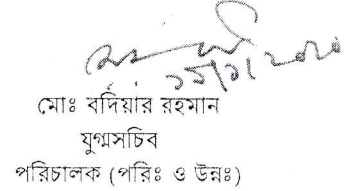 মোঃ বদিয়ার রহমান
যুগ্মসচিব
পরিচালক (পরিঃ ও উন্নঃ)